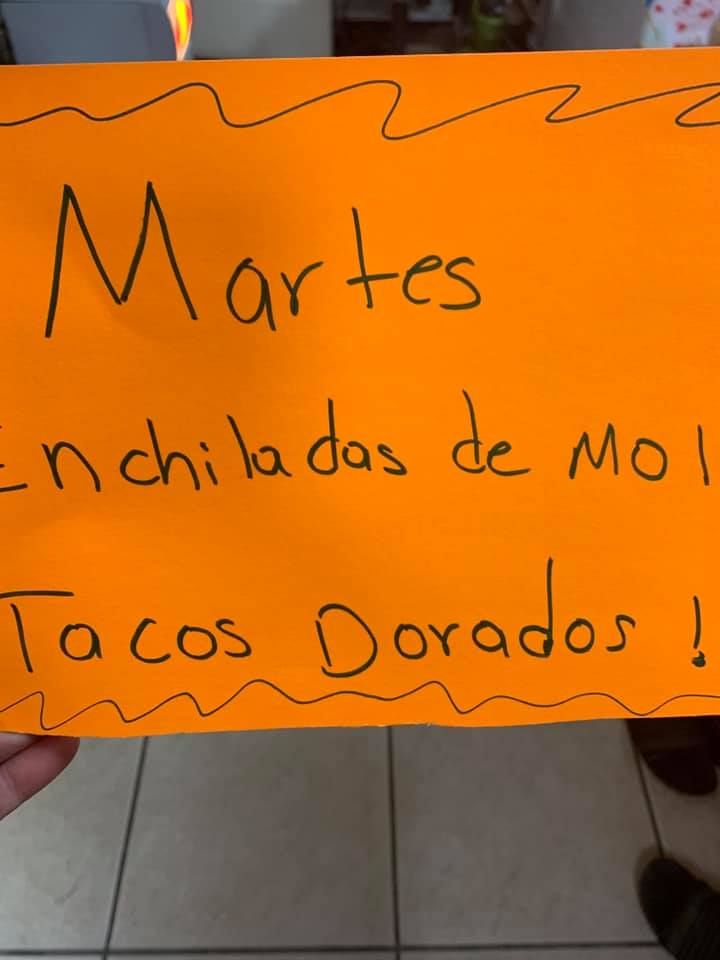 Martes
Enchiladas de Mol
Tacos Dorados!